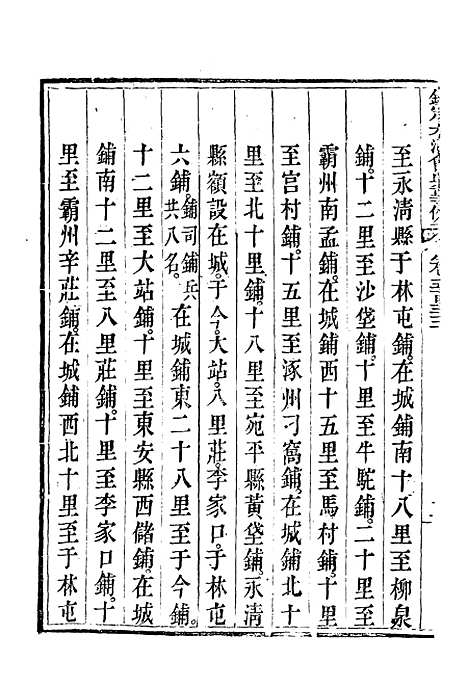 至永清縣于林屯鋪。在城鋪南十八里至柳泉
鋪。十二里至沙垡鋪。十里至牛駝鋪。二十里至
霸州南孟鋪。在城鋪西十五里至馬村鋪。十里
至宫村鋪。十五里至涿州刁窩鋪。在城鋪北十
里至北十里鋪。十八里至宛平縣黃垡鋪。永清
縣額設在城。于今。大站。八里莊。李家口。于林屯
六鋪。鋪司鋪兵共八名。在城鋪東二十八里至于今鋪。
十二里至大站鋪。十里至東安縣西儲鋪。在城
鋪南十二里至八里莊鋪。十里至李家口鋪。十
里至霸州辛莊鋪。在城鋪西北十里至于林屯